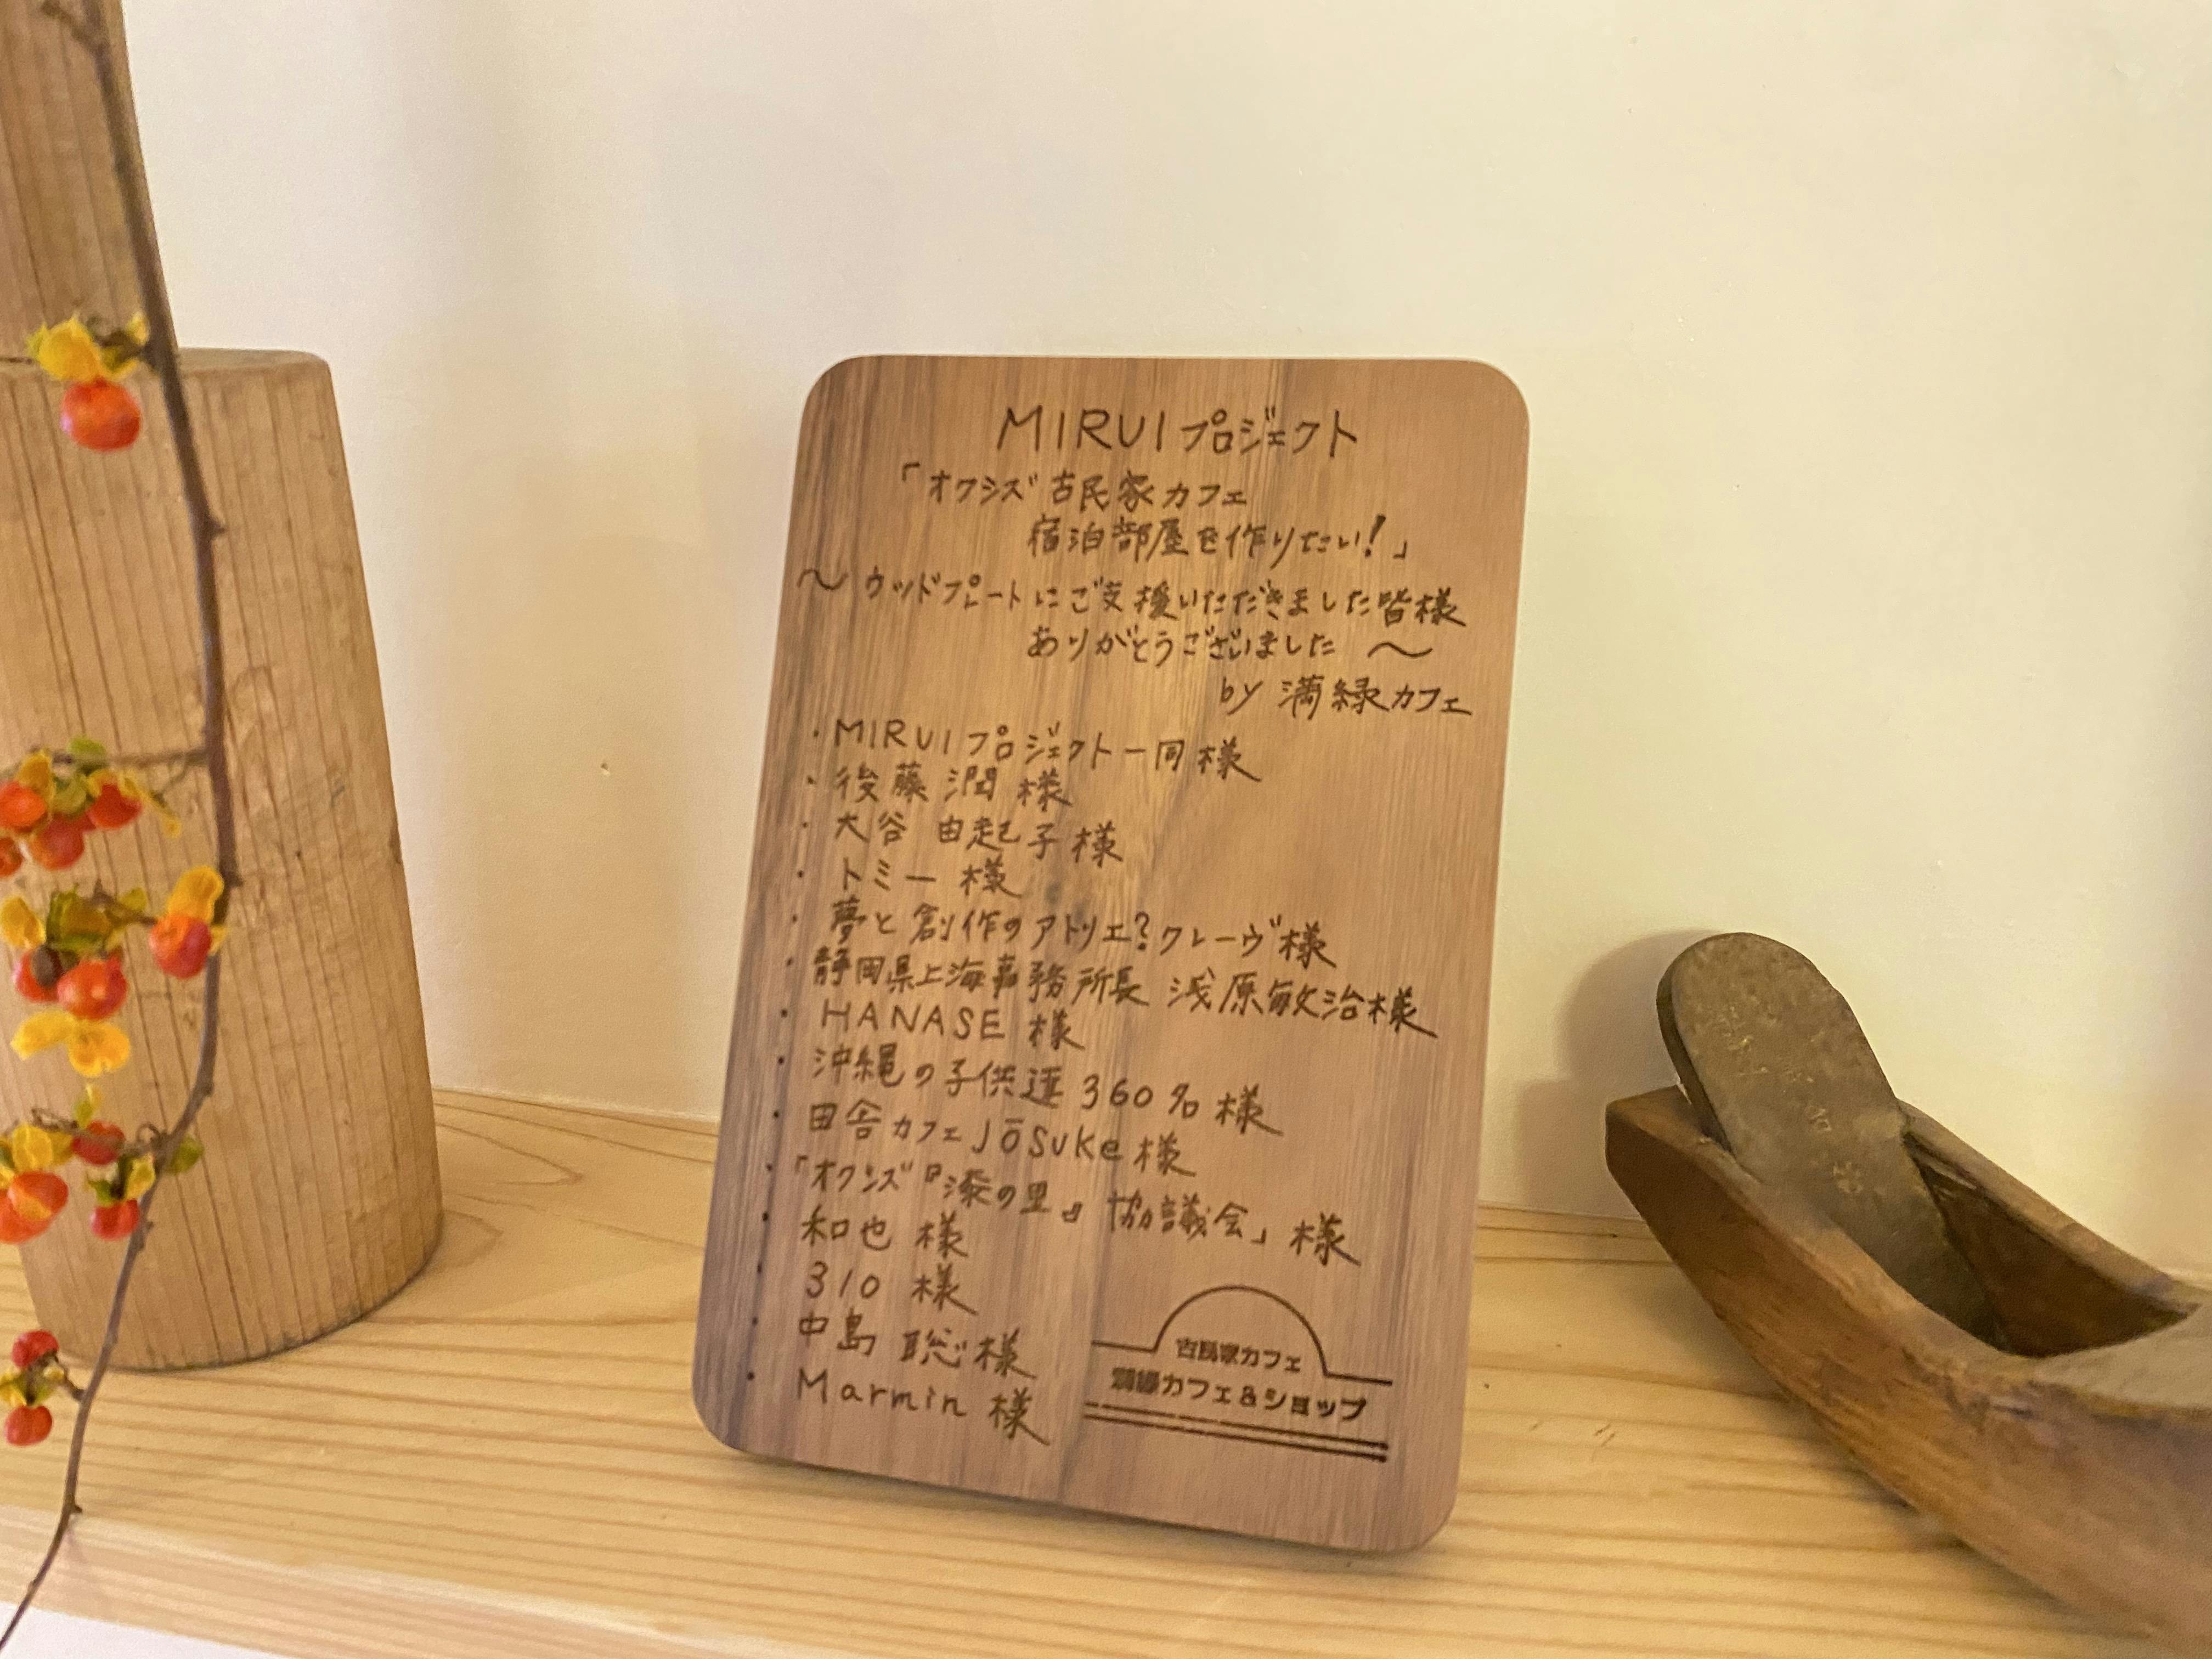 MIRUIプロジェクト
「オクシズ古民家カフェ
宿泊部屋を作りたい!」
〜ウッドプレートにご支援いただきました皆様
ありがとうございました〜
by 満緑カフェ
・MIRUIプロジェクト一同様
・後藤 潤様
・大谷 由起子様
・トミー様
・夢と創作のアトリエ?クレーヴ様
・静岡県上海事務所長 浅原敏治様
・HANASE様
・沖縄の子供達360名様
・田舎カフェJōSuke様
・「オクシズ『漆の里』協議会」様
・和也様
・310様
・中島 聡様
・Marmin様
古民家カフェ
満緑カフェ&ショップ